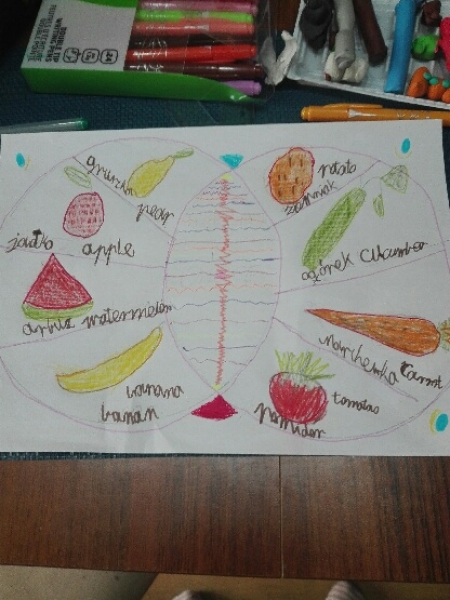 gruszka
pear
jabłko
apple
arbuz watermelon
banana
banan
potato
ziemniak
ogórek Cucumber
marchewka Carrot
tomatos
pomidor